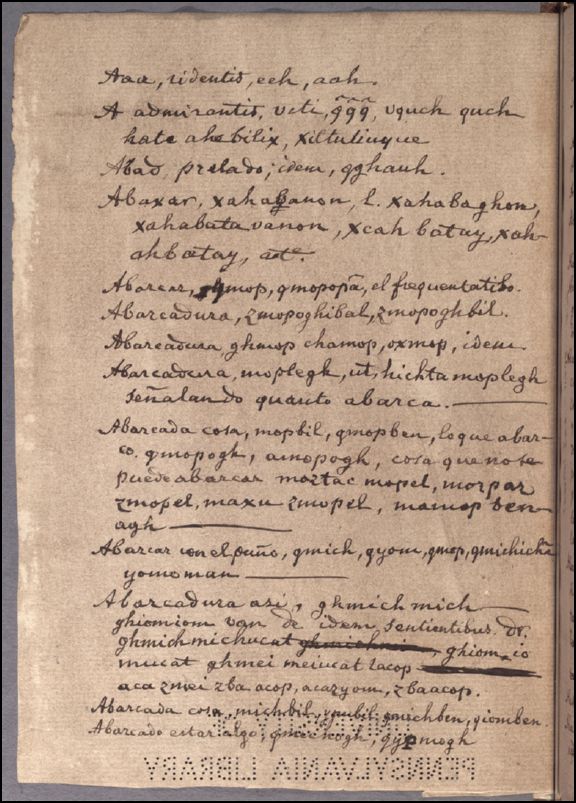 Aaa, ridentis, eeh, aah.
A admirantis, uti, q̃q̃q̃, vquch quch
hate ahe bilix, xiltuliuque
Abad, prelado; idem, qghauh.
Abaxar, xahabanon, l. xahabaghon,
xahabata vanon, xcah batuy, xah-
ahbatay, acte.
Abarcar, qmop, qmopopã, el frequentatibo.
Abarcadura, zmopoghibal, zmopoghbil.
Abarcadura, ghmop chamop, oxmop, idem.
Abarcadura, moplegh, ut, hichta moplegh
señalando quanto abarca.
Abarcada cosa, mopbil, qmopben, lo que abar-
co. qmopogh, amopogh, cosa que no se
puede abarcar moztac mopel, morpar
zmopel, maxu zmopel, mamop ben-
agh
Abarcar con el puño, qmich, qyom, qmop, qmichichã
yomoman
Abarcadura asi, ghmich mich
ghiomiom van de idem, sentientibus. Dr.
ghmich michucat, ghiom, io
mucat ghmei meiucat zacop
aca zmei zba acop, acazyom, zbaacop.
Abarcada cosa, michbil, yombil, qmichben, qiomben.
Abarcado estar algo, qmichogh, qypmogh
HISTORICAL SOCIETY
PENNSYLVANIA LIBRARY